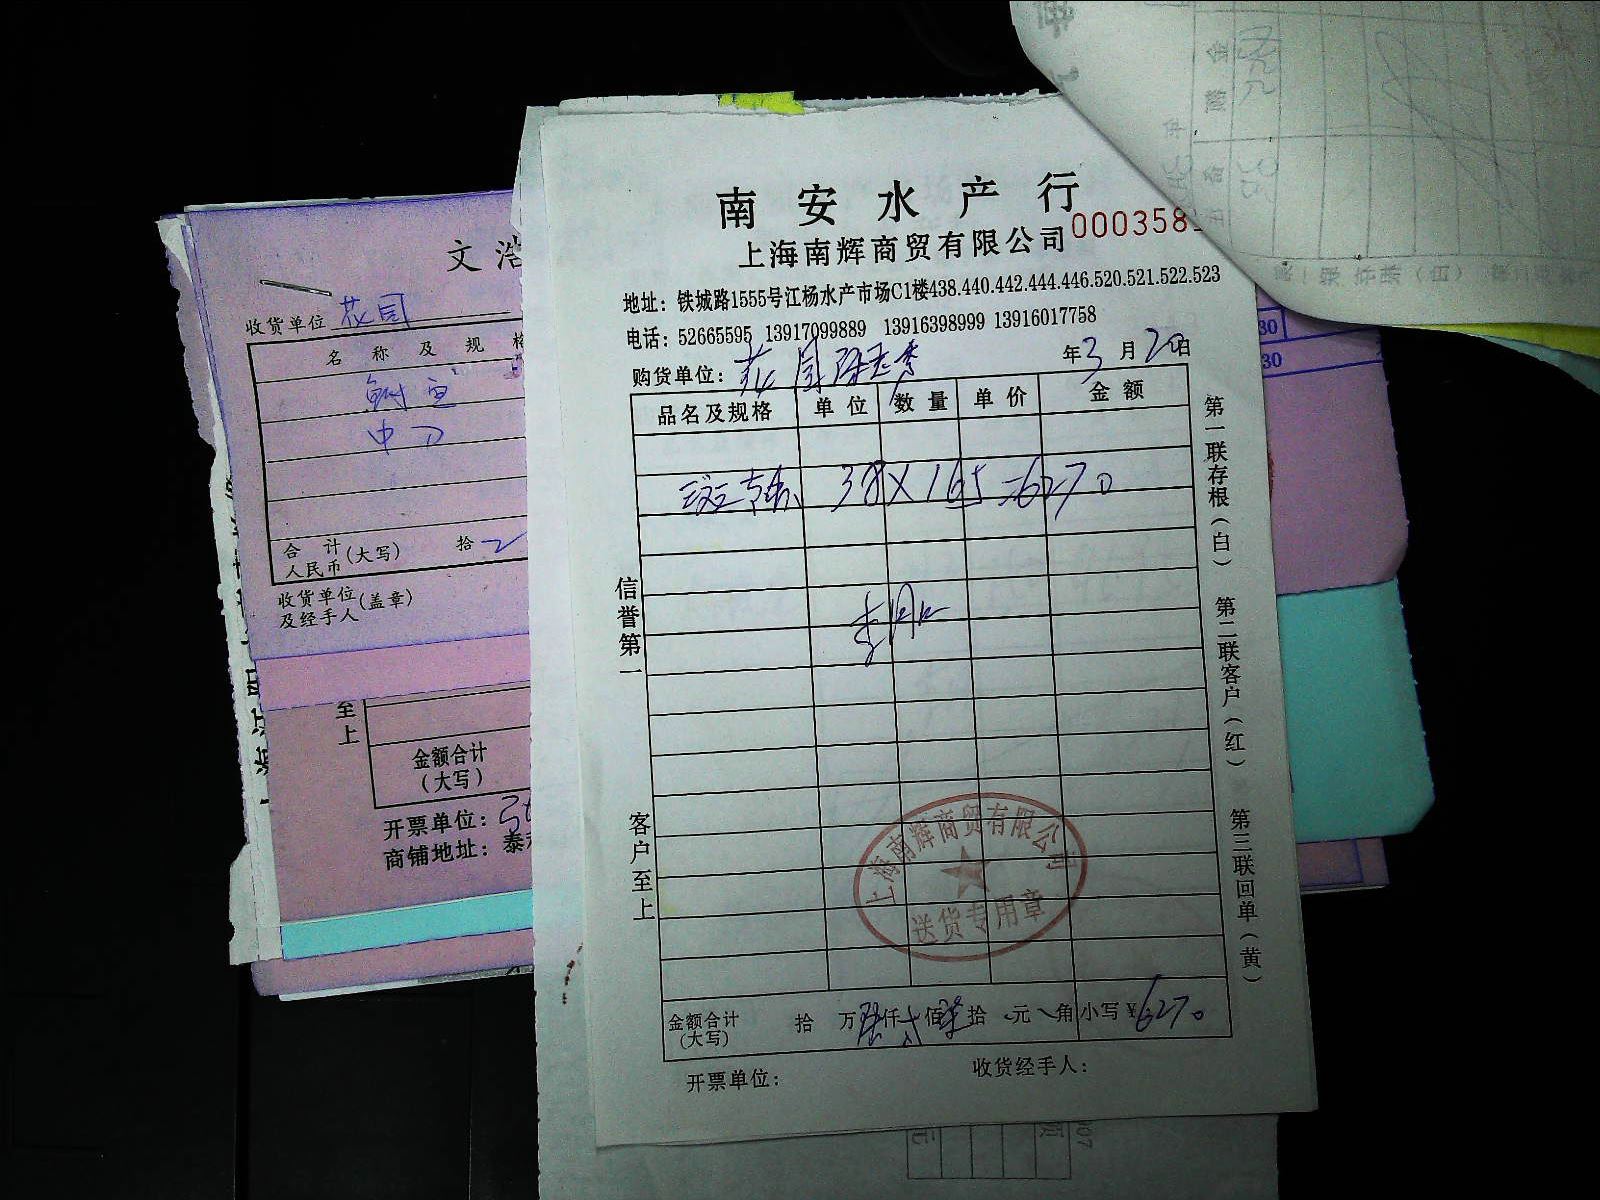 南安水产行
上海南辉商贸有限公司 000358
地址：铁城路1555号江杨水产市场C1楼438.440.442.444.446.520.521.522.523
电话：52665595 13917099889 13916398999 13916017758
购货单位：花园 年3月20日
品名及规格 单位 数量 单价 金额
38×165=6270
信誉第一
客户至上
第一联存根（白）
第二联客户（红）
第三联回单（黄）
上海南辉商贸有限公司
送货专用章
金额合计（大写） 拾 万 陆仟 贰佰 柒拾 元 角 小写￥6270
开票单位：
收货经手人：
文浩
收货单位 花园
名称及规格
中刀
合计人民币（大写） 拾
收货单位及经手人（盖章）
至上
金额合计（大写）
开票单位：
商铺地址：泰
30
30